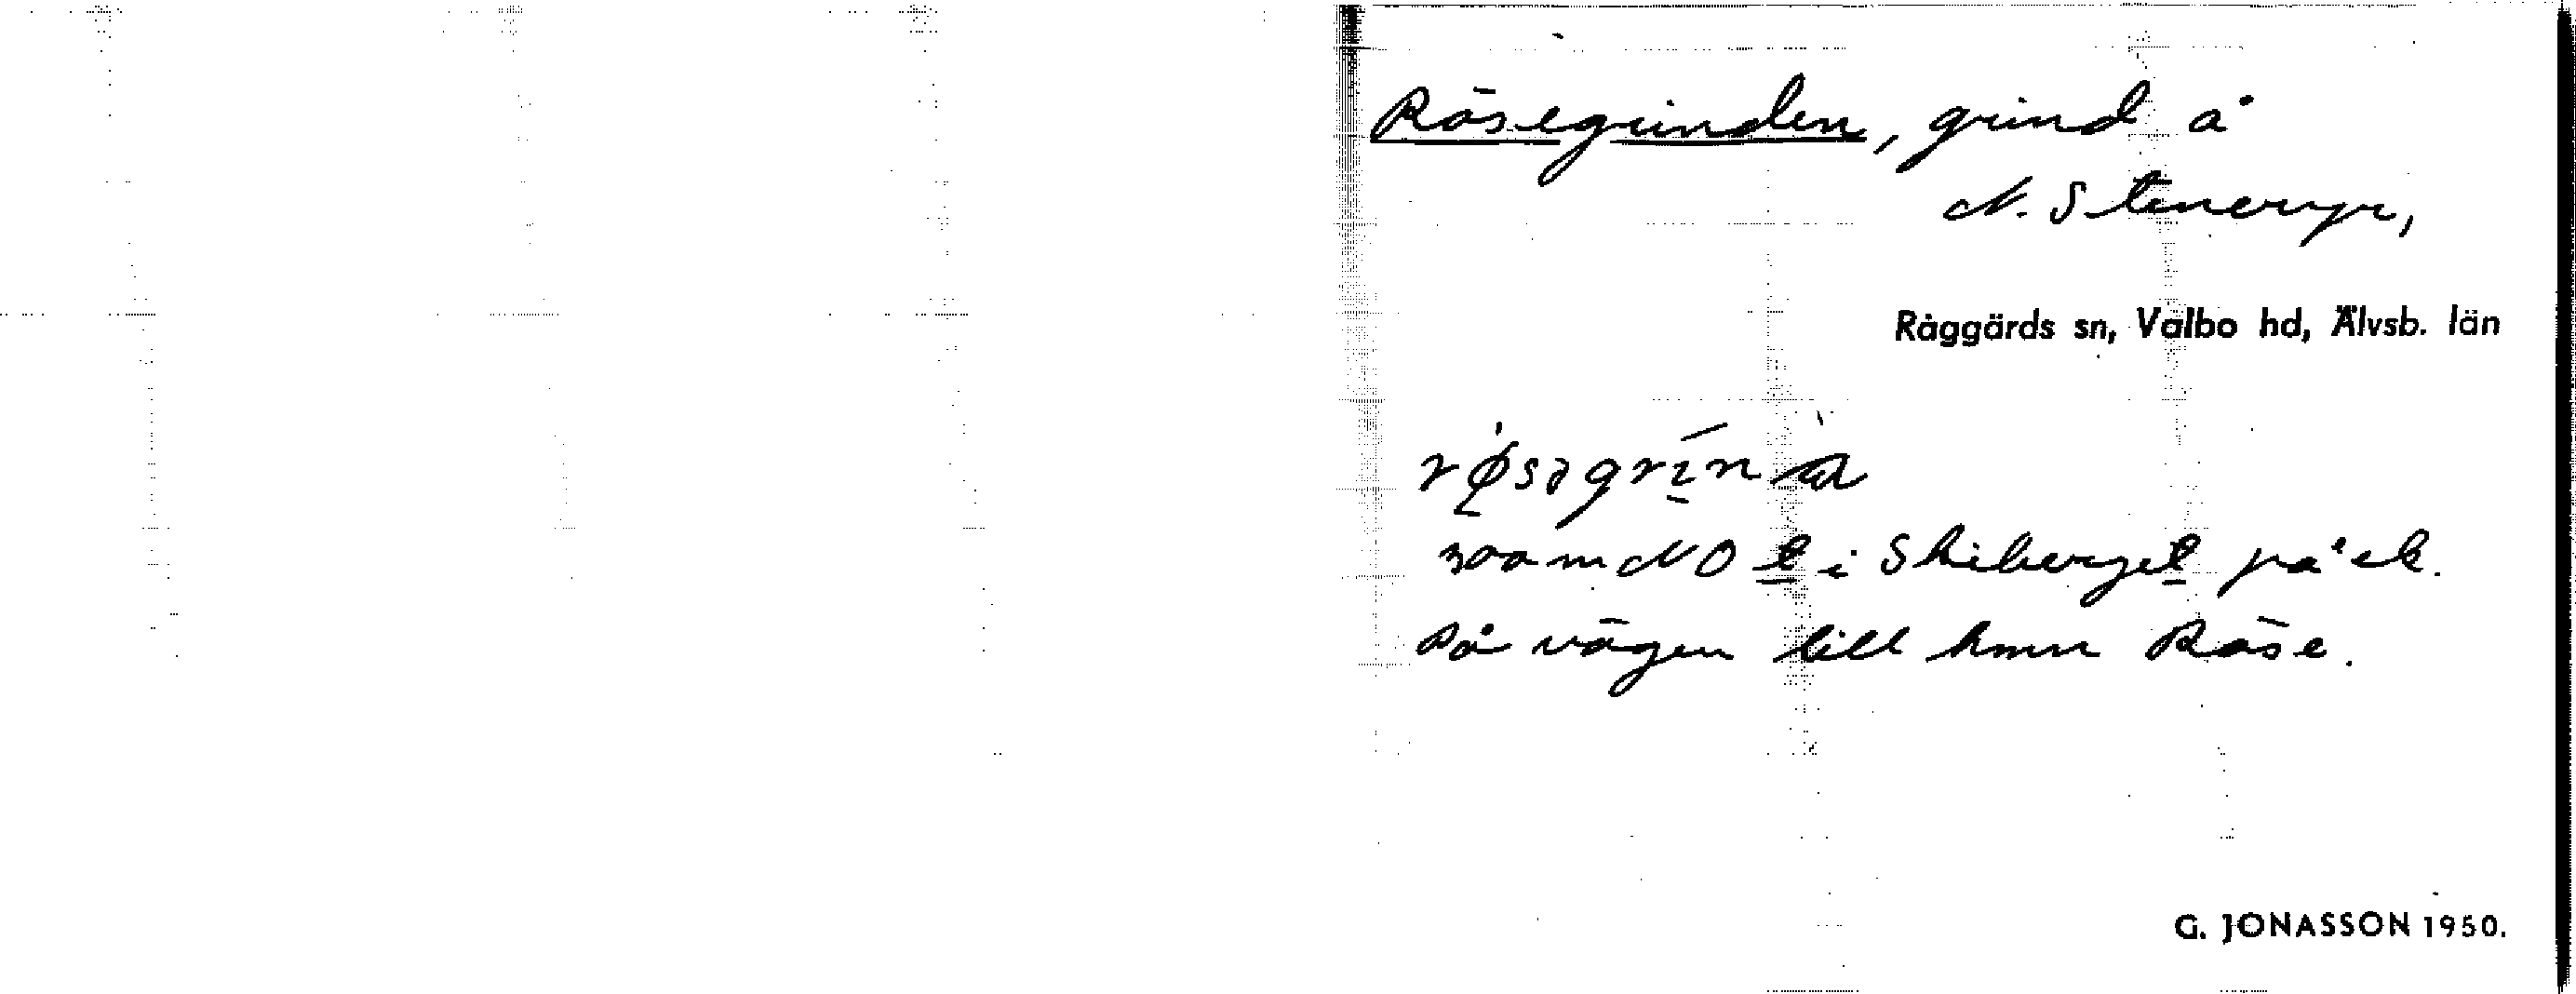 Rösegrinden, grind å
N. Stenemyr,
Råggärds sn, Valbo hd, Älvsb. län
røsəgrina
NO t i Skiberget på ek.
På vägen till hmn Röse.
G. JONASSON 1950.